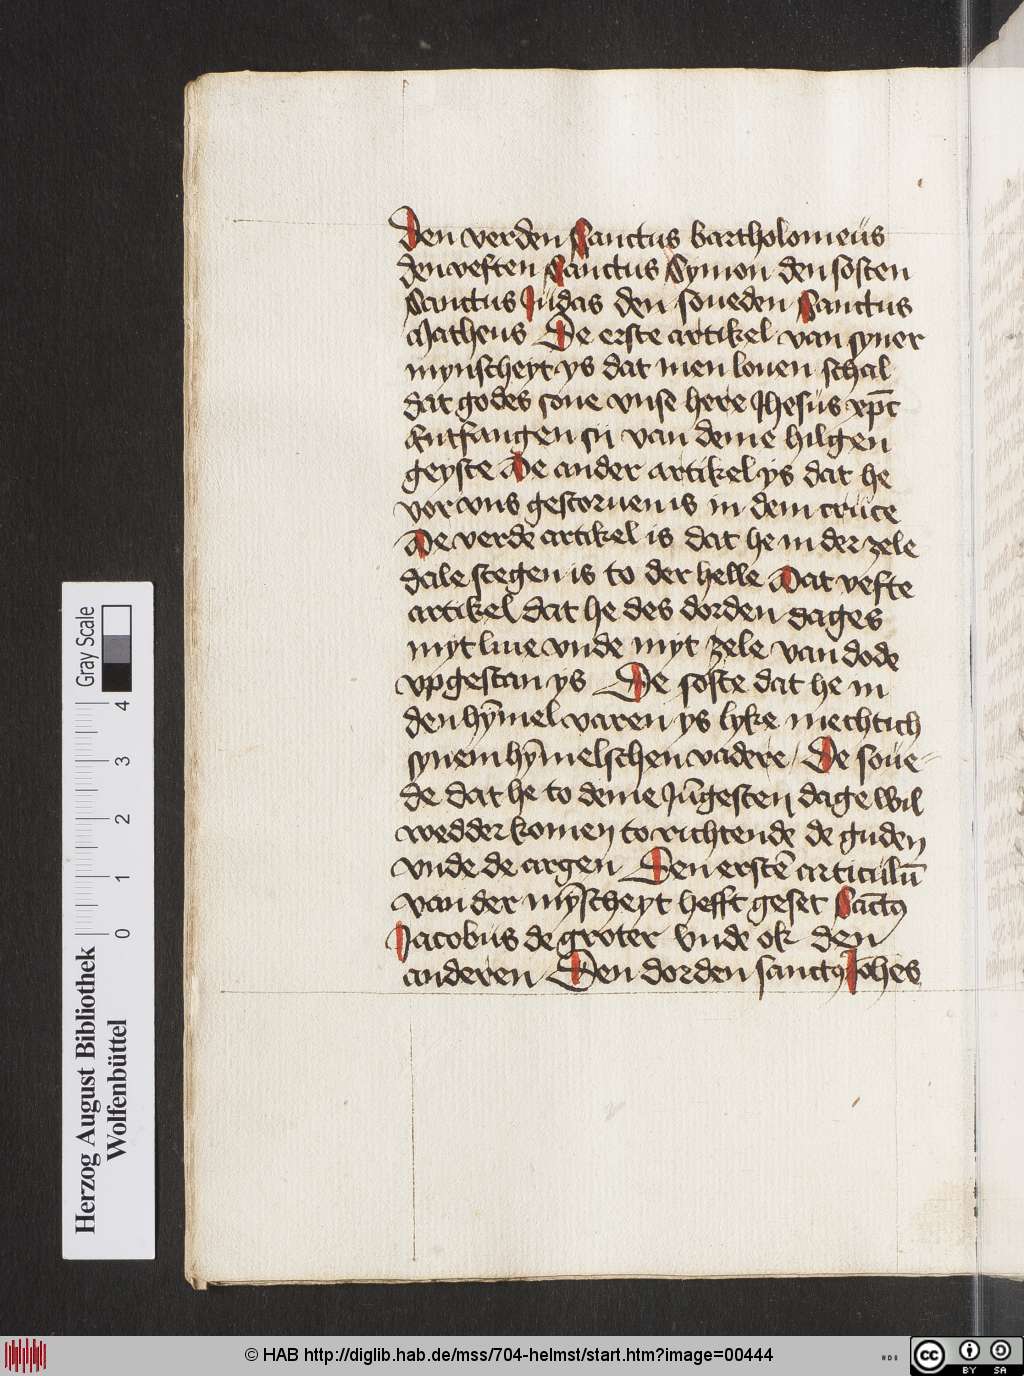 Den verden Sanctus bartholomeus
den veften Sanctus Symon den sosten
Sanctus Judas den soueden Sanctus
Matheus De erste artikel van syner
mynscheyt ys dat men louen schal
dat godes sone vnse here Jhesus xp̄c
Entfangen sij van deme hilgen
geyste De ander artikel ys dat he
vor vns gestoruen is in dem cruce
De verde artikel is dat he in der zele
dale stegen is to der helle Dat vefte
artikel dat he des dorden dages
myt liue vnde myt zele van dode
vpgestan ys De soste dat he in
den hȳmel varen ys lyke mechtich
synem hȳmelschen vadere / De soue-
de dat he to deme Jūgesten dage wil
wedder komen to richtende de guden
vnde de argen Den erstē articulū
van der mȳscheyt hefft geset Sāctꝯ
Jacobus de groter Vnde ok den
anderen Den dorden sanctꝯ Johēs
Herzog August Bibliothek
Wolfenbüttel
0 1 2 3 4
Gray Scale
© HAB http://diglib.hab.de/mss/704-helmst/start.htm?image=00444
cc BY SA